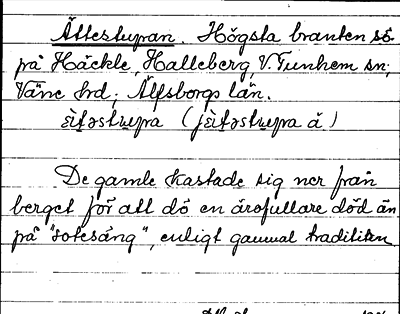 Ättestupan. Högsta branten sö.
på Häckle, Halleberg, V. Tunhem sn;
Väne hrd; Älfsborgs län.
De gamle kastade sig ner från
berget för att dö en ärofullare död än
på "sotesäng", enligt gammal tradition.